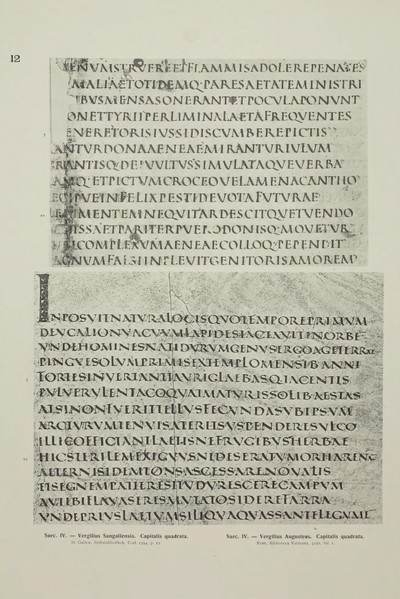 12
VENVMSTRVEREETFLAMMISADOLEREPENATES
MALIAETOTIDEMQ·PARESAETATEMINISTRI
IBVSMENSASONERANTETPOCVLAPONVNT
ONETTYRIIPERLIMINALAETAFREQVENTES
ENERETORISIVSSIDISCVMBEREPICTIS
ANTVRDONAAENEAEMIRANTVRIVLVM
RANTISQ·DEIVVLTVSSIMVLATAQVEVERBA
AMQ·ETPICTVMCROCEOVELAMENACANTHO
CIPVEINFELIXPESTIDEVOTAFVTVRAE
RIMENTEMNEQVITARDESCITQVETVENDO
ISSAETPARITERPVERODONISQ·MOVETVR
ICOMPLEXVMAENEAECOLLOQ·PEPENDIT
AGNVMFALSIINPLEVITGENITORISAMOREM
INPOSVITNATVRALOCISQVOTEMPOREPRIMVM
DEVCALIONVACVVMLAPIDESIACTAVITINORBE
VNDEHOMINESNATIDVRVMGENVSERGOAGETERRAE
PINGVESOLVMPRIMISEXTEMPLOMENSIBANNI
FORTESINVERTANTTAVRIGLAEBASQ·IACENTIS
PVLVERVLENTACOQVATMATVRISSOLIBAESTAS
ATSINONFVERITTELLVSFECVNDASVBIPSVM
ARCTVRVMTENVISATERITSVSPENDERESVLCO
ILLICOFFICIANTLAETISNEFRVGIBVSHERBAE
HICSTERILEMEXIGVVSNEDESERATVMORHARENAM
ALTERNISIDEMTONSASCESSARENOVALIS
ETSEGNEMPATIERESITVDVRESCERECAMPVM
AVTIBIFLAVASERESMVTATOSIDEREFARRA
VNDEPRIVSLAETVMSILIQVAQVASSANTELEGVME
Saec. IV. — Vergilius Sangallensis. Capitalis quadrata.
St. Gallen, Stiftsbibliothek, Cod. 1394, p.
Saec. IV. — Vergilius Augusteus. Capitalis quadrata.
Rom, Biblioteca Vaticana, 3256, fol.